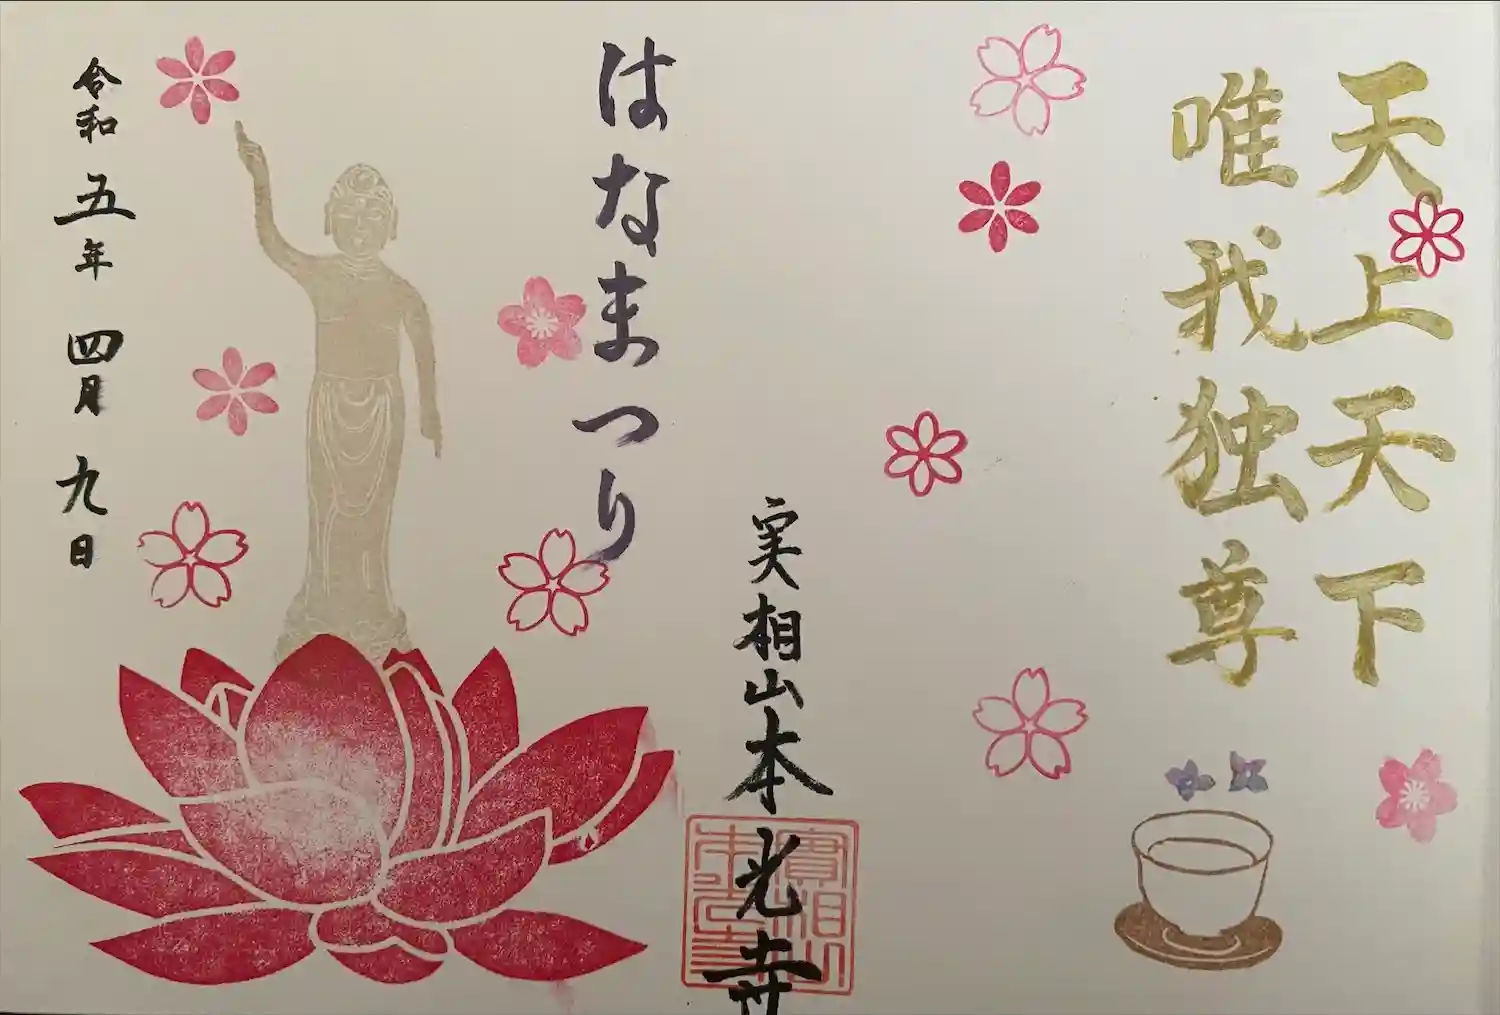 天上天下
唯我独尊
はなまつり
実相山本光寺
實相山
本光寺
令和五年四月九日